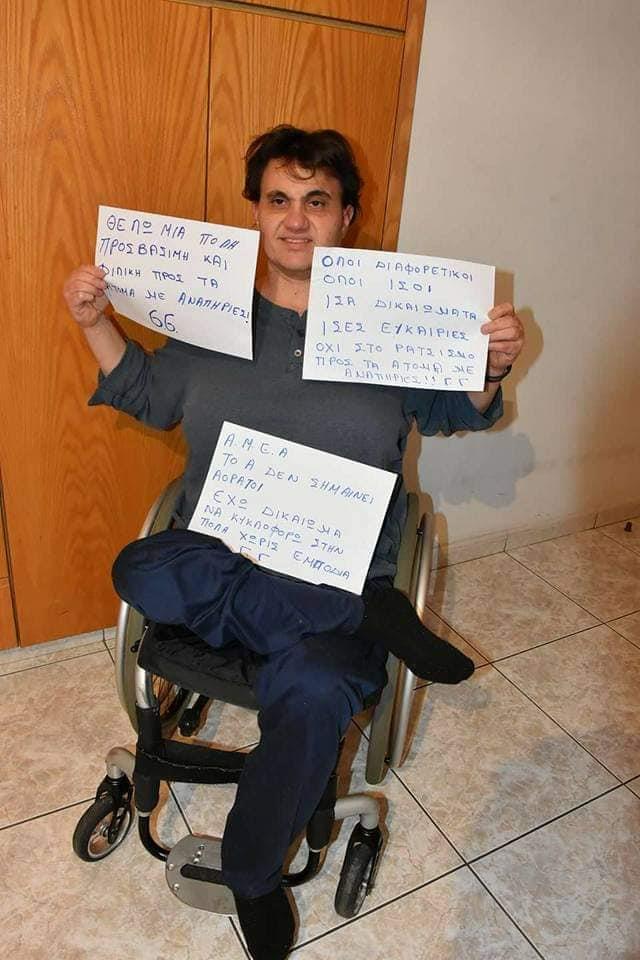 ΘΕΛΩ ΜΙΑ ΠΟΛΗ
ΠΡΟΣΒΑΣΙΜΗ ΚΑΙ
ΦΙΛΙΚΗ ΠΡΟΣ ΤΑ
ΑΤΟΜΑ ΜΕ ΑΝΑΠΗΡΙΕΣ!
GG.
ΟΛΟΙ ΔΙΑΦΟΡΕΤΙΚΟΙ
ΟΛΟΙ ΙΣΟΙ
ΙΣΑ ΔΙΚΑΙΩΜΑΤΑ
ΙΣΕΣ ΕΥΚΑΙΡΙΕΣ
ΟΧΙ ΣΤΟ ΡΑΤΣΙΣΜΟ
ΠΡΟΣ ΤΑ ΑΤΟΜΑ ΜΕ
ΑΝΑΠΗΡΙΕΣ!! Γ Γ
Α.Μ.Ε.Α
ΤΟ Α ΔΕΝ ΣΗΜΑΙΝΕΙ
ΑΟΡΑΤΟΙ
ΕΧΩ ΔΙΚΑΙΩΜΑ
ΝΑ ΚΥΚΛΟΦΟΡΩ ΣΤΗΝ
ΠΟΛΑ ΧΩΡΙΣ ΕΜΠΟΔΙΑ
Γ Γ